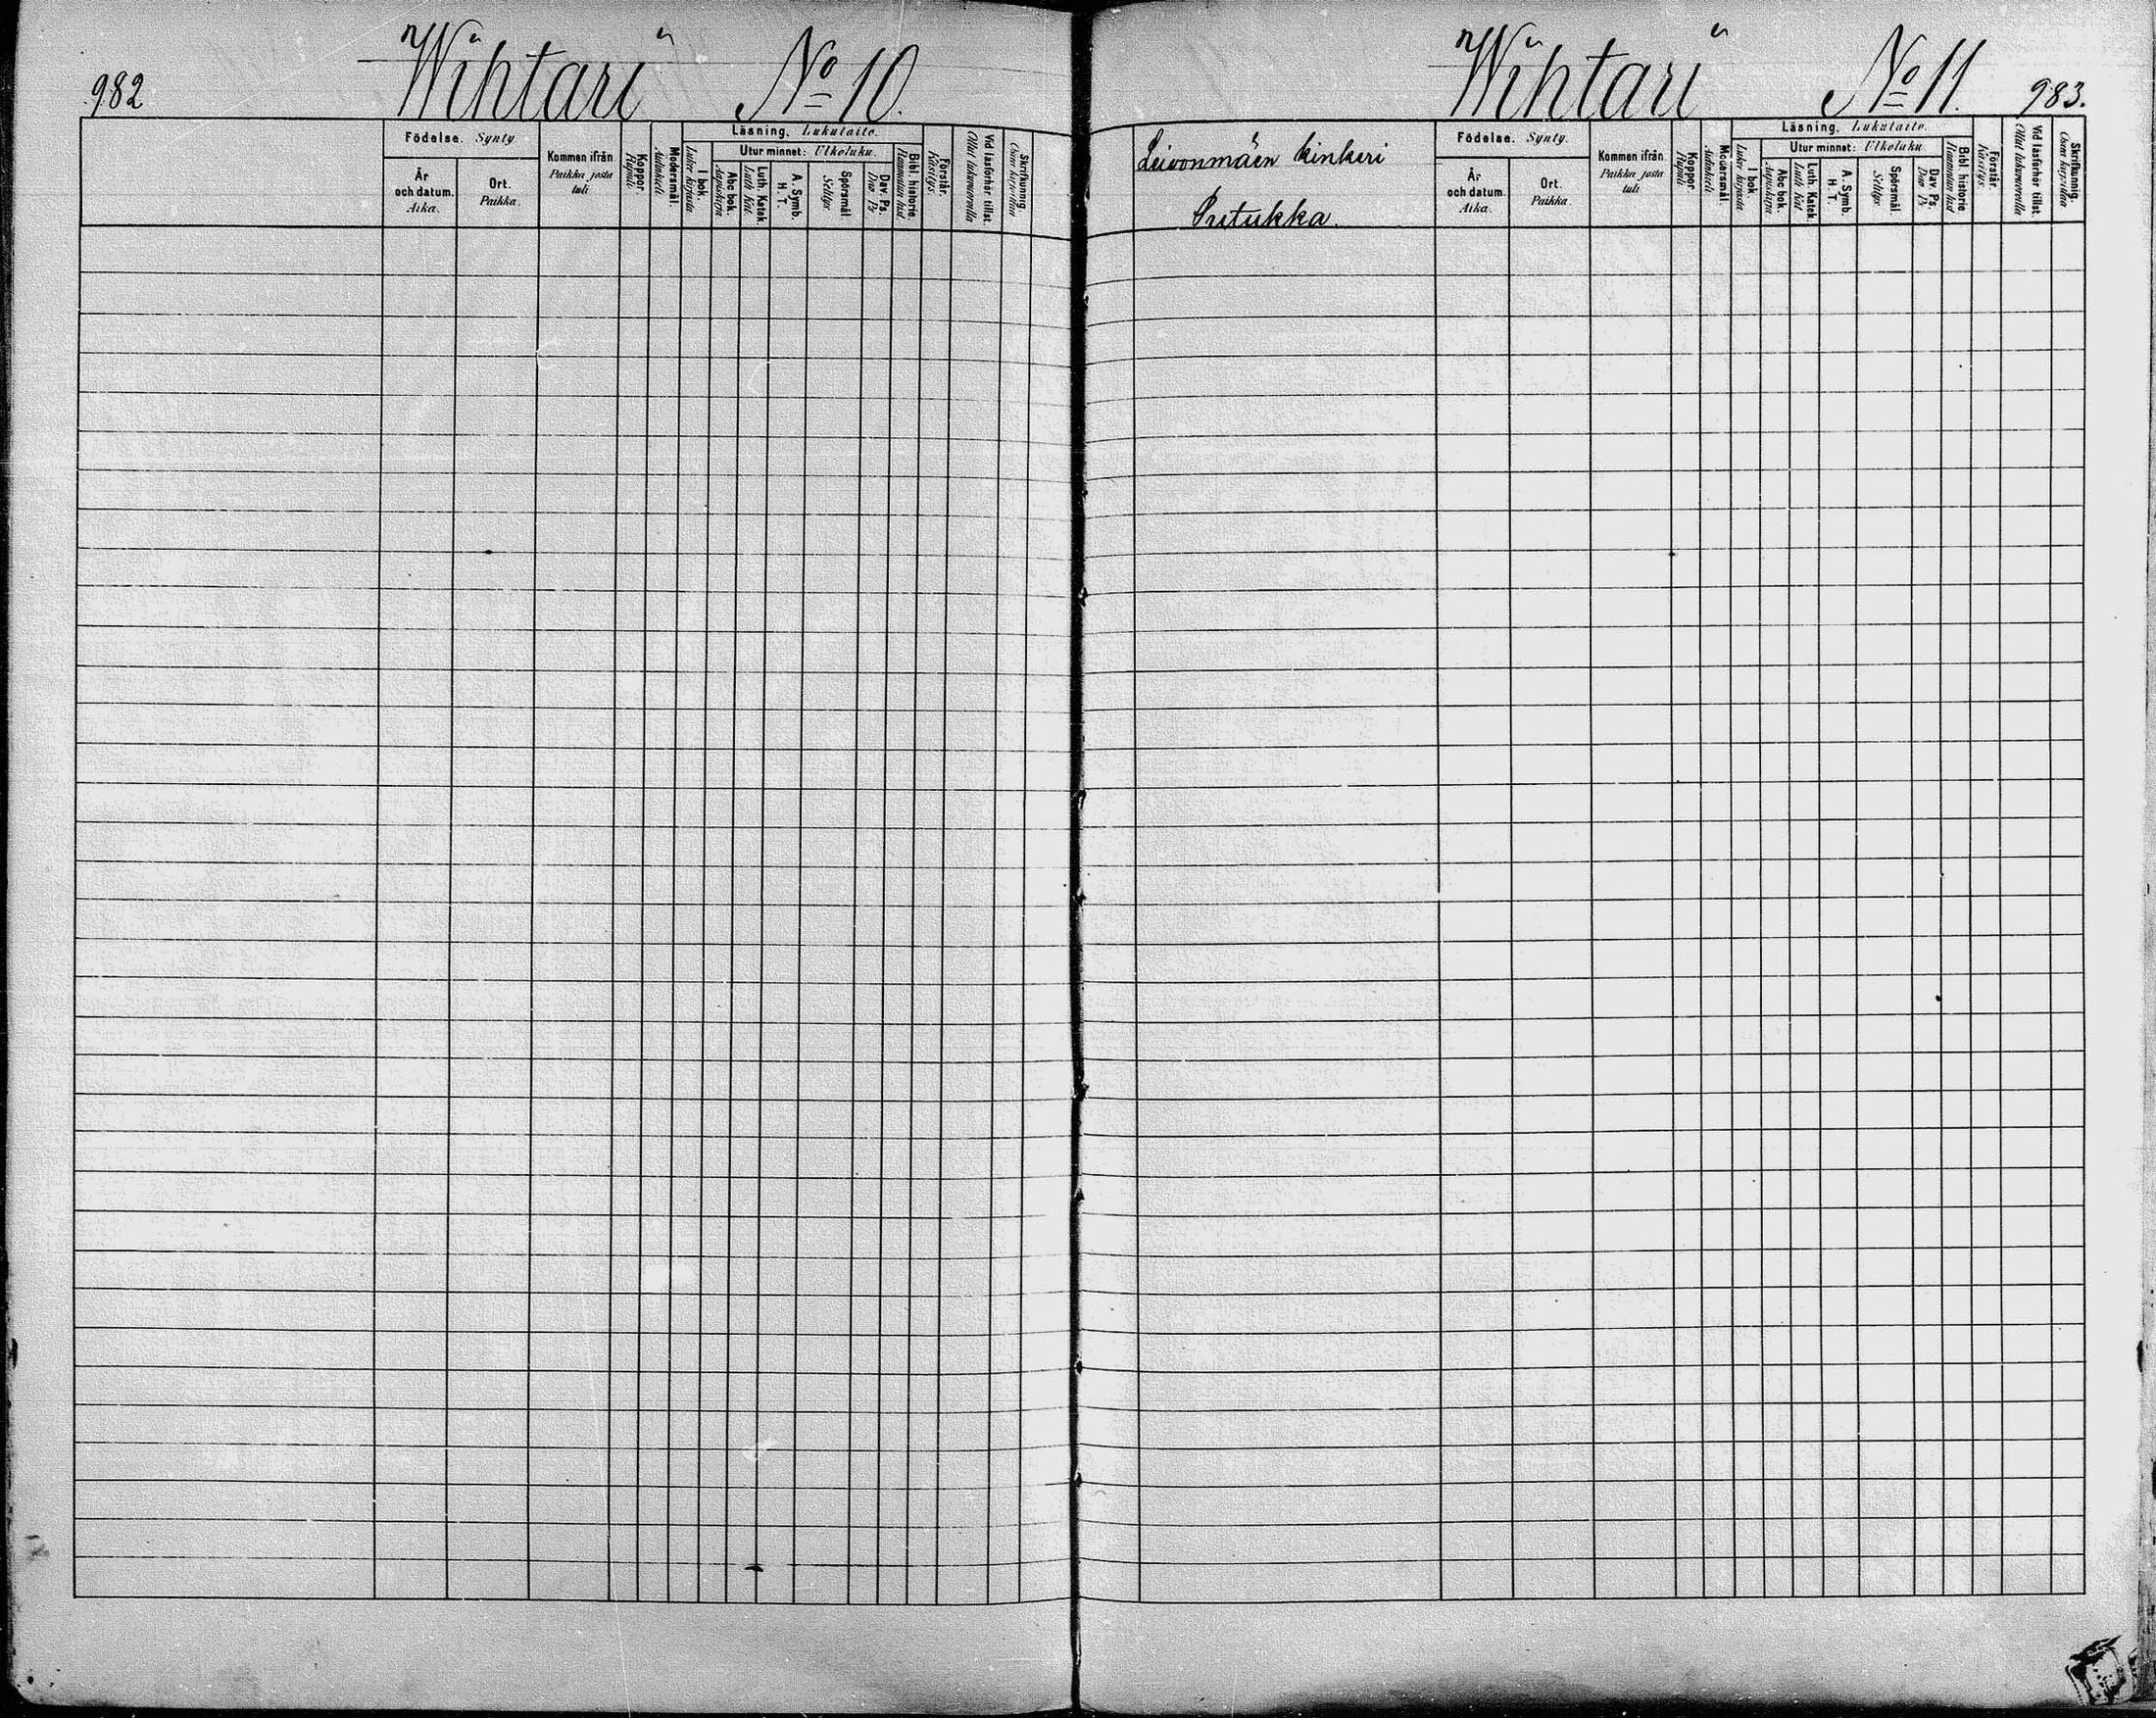 982
Wihtari No 10.
Födelse. Synty
År och datum. Aika.
Ort. Paikka.
Kommen ifrån Paikka josta tuli
Koppor Rupuli
Modersmål Äidinkieli
Läsning. Lukutaito.
I bok. Luku kirjasta
Utur minnet: Ulkoluku.
Abc bok. Aapiskirja
Luth. Katek. Luth Kat.
A. Symb. H. T.
Spörsmål Selitys
Dav. Ps. Dav Ps
Bibl. historie Raamatun hist.
Förstår. Käsitys.
Vid läsförhör tillst. Ollut lukuvuoroilla
Skrifkunnig
Wihtari No 11. 983.
Leivonmäen kinkeri
Födelse. Synty.
År och datum. Aika.
Ort. Paikka.
Kommen ifrån Paikka josta tuli
Koppor Rupuli
Modersmål. Äidinkieli
Läsning. Lukutaito.
I bok. Luku kirjasta
Utur minnet: Ulkoluku
Abc bok. Aapiskirja
Luth. Katek. Luth Kat.
A. Symb. H. T.
Spörsmål Selitys
Dav. Ps. Dav Ps
Bibl. historie Raamatun hist
Förstår. Käsitys.
Vid läsförhör tillst. Ollut lukuvuoroilla
Skrifkunnig.